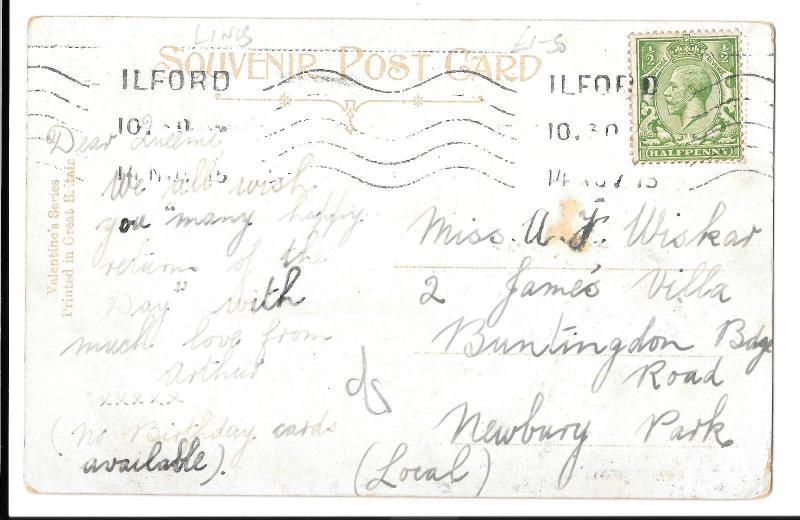 LINCS
£1-50
SOUVENIR POST CARD
ILFORD
10.30
14 NOV 15
ILFORD
10.30
14 NOV 15
HALFPENNY
Valentine's Series
Printed in Great Britain
Dear Queenie
We all wish
you "many happy
returns of the
Day" with
much love from
Arthur
xxxxx
(No Birthday cards
available).
Miss. A. F. Wiskar
2 James Villa
Buntingdon Bdge
Road
Newbury Park
(Local)